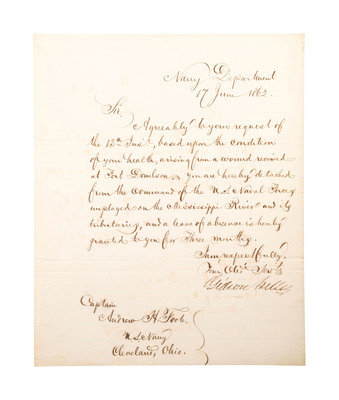 Navy Department
17 June 1862.
Sir,
Agreeably to your request of
the 13th Inst, based upon the condition
of your health, arising from a wound received
at Fort Donelson, you are hereby detached
from the command of the U.S. Naval Force
employed on the Mississippi River and its
tributaries, and a leave of absence is hereby
granted to you for Three months.
I am respectfully,
Your Obdt Servt
Gideon Welles
Captain
Andrew H. Foote,
U.S. Navy
Cleveland, Ohio.